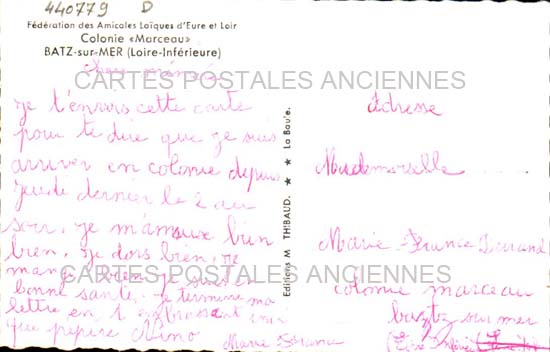 440779 D
Fédération des Amicales Laïques d'Eure et Loir
Colonie «Marceau»
BATZ-sur-MER (Loire-Inférieure)
CARTES POSTALES ANCIENNES
je t'envois cette carte
pour te dire que je suis
arriver en colonie depuis
jeudi dernier le 2 au
soir, je m'amuse bien
bien, je dors bien, je
mange bien je suis en
bonne santé. je termine ma
lettre en t embrassant
que pépère Nino
Marie France
Editions M. THIBAUD. ★ ★ La Baule.
Adresse
Mademoiselle
Marie-France Durand
CARTES POSTALES ANCIENNES
colonie marceau
batz sur mer